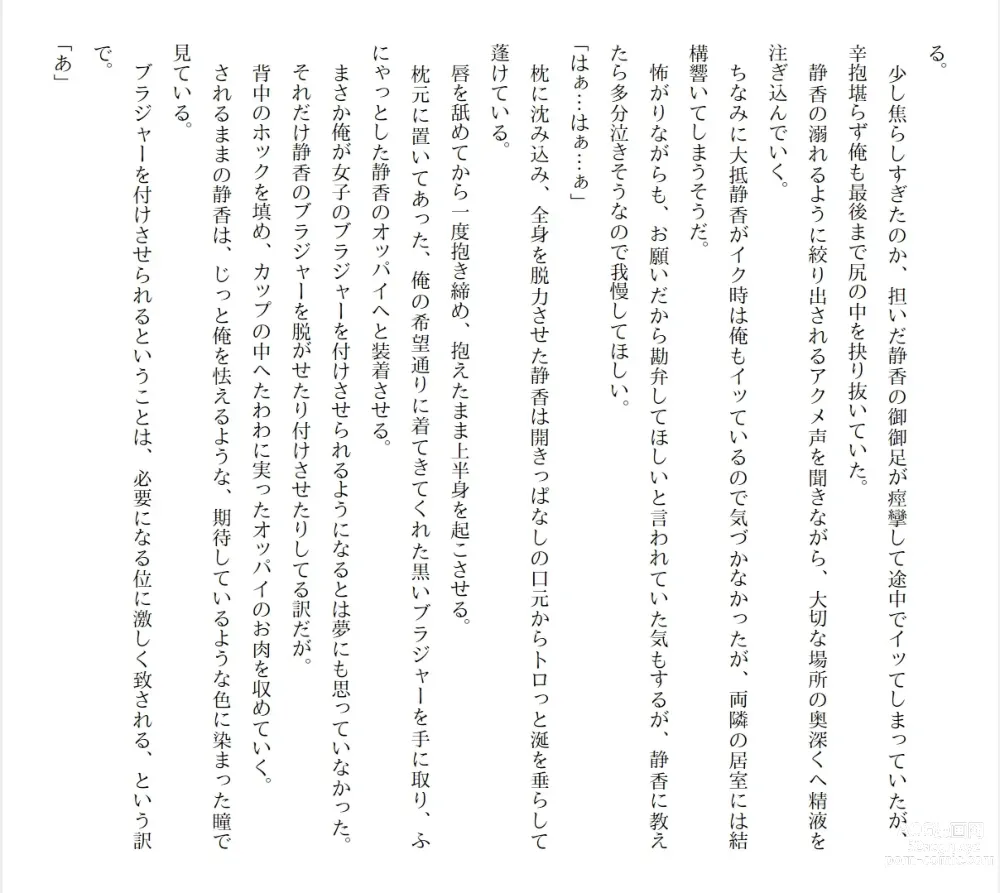 る。
少し焦らしすぎたのか、担いだ静香の御御足が痙攣して途中でイッてしまっていたが、
辛抱堪らず俺も最後まで尻の中を抉り抜いていた。
静香の溺れるように絞り出されるアクメ声を聞きながら、大切な場所の奥深くへ精液を
注ぎ込んでいく。
ちなみに大抵静香がイク時は俺もイッているので気づかなかったが、両隣の居室には結
構響いてしまうそうだ。
怖がりながらも、お願いだから勘弁してほしいと言われていた気もするが、静香に教え
たら多分泣きそうなので我慢してほしい。
「はぁ…はぁ…ぁ」
枕に沈み込み、全身を脱力させた静香は開きっぱなしの口元からトロっと涎を垂らして
蓬けている。
唇を舐めてから一度抱き締め、抱えたまま上半身を起こさせる。
枕元に置いてあった、俺の希望通りに着てきてくれた黒いブラジャーを手に取り、ふ
にゃっとした静香のオッパイへと装着させる。
まさか俺が女子のブラジャーを付けさせられるようになるとは夢にも思っていなかった。
それだけ静香のブラジャーを脱がせたり付けさせたりしてる訳だが。
背中のホックを填め、カップの中へたわわに実ったオッパイのお肉を収めていく。
されるままの静香は、じっと俺を怯えるような、期待しているような色に染まった瞳で
見ている。
ブラジャーを付けさせられるということは、必要になる位に激しく致される、という訳
で。
「あ」